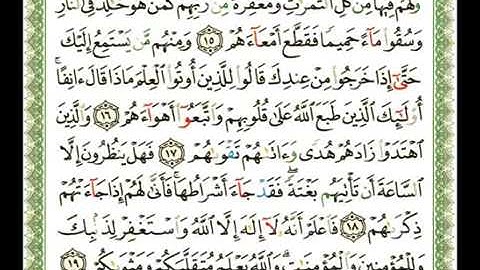 وَلَهُمْ فِيهَا مِن كُلِّ الثَّمَرَٰتِ وَمَغْفِرَةٌ مِّن رَّبِّهِمْ كَمَنْ هُوَ خَٰلِدٌ فِي النَّارِ
وَسُقُوا۟ مَآءً حَمِيمًا فَقَطَّعَ أَمْعَآءَهُمْ ١٥ وَمِنْهُم مَّن يَسْتَمِعُ إِلَيْكَ
حَتَّىٰٓ إِذَا خَرَجُوا۟ مِنْ عِندِكَ قَالُوا۟ لِلَّذِينَ أُوتُوا۟ الْعِلْمَ مَاذَا قَالَ ءَانِفًا ۚ
أُو۟لَٰٓئِكَ الَّذِينَ طَبَعَ اللَّهُ عَلَىٰ قُلُوبِهِمْ وَاتَّبَعُوٓا۟ أَهْوَآءَهُمْ ١٦ وَالَّذِينَ
اهْتَدَوْا۟ زَادَهُمْ هُدًى وَءَاتَىٰهُمْ تَقْوَىٰهُمْ ١٧ فَهَلْ يَنظُرُونَ إِلَّا
السَّاعَةَ أَن تَأْتِيَهُم بَغْتَةً ۖ فَقَدْ جَآءَ أَشْرَاطُهَا ۚ فَأَنَّىٰ لَهُمْ إِذَا جَآءَتْهُمْ
ذِكْرَىٰهُمْ ١٨ فَاعْلَمْ أَنَّهُۥ لَآ إِلَٰهَ إِلَّا اللَّهُ وَاسْتَغْفِرْ لِذَنۢبِكَ
وَلِلْمُؤْمِنِينَ وَالْمُؤْمِنَٰتِ ۗ وَاللَّهُ يَعْلَمُ مُتَقَلَّبَكُمْ وَمَثْوَىٰكُمْ ١٩